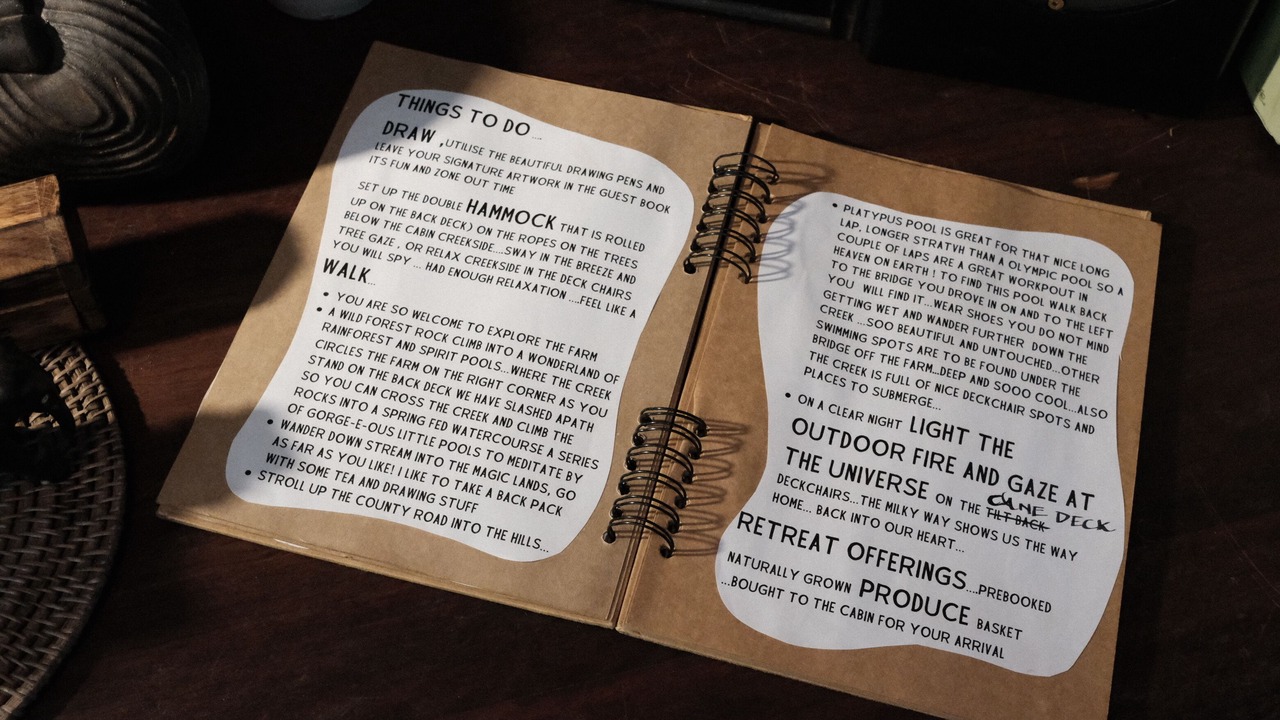 THINGS TO DO....
DRAW ,UTILISE THE BEAUTIFUL DRAWING PENS AND
LEAVE YOUR SIGNATURE ARTWORK IN THE GUEST BOOK
ITS FUN AND ZONE OUT TIME
SET UP THE DOUBLE HAMMOCK THAT IS ROLLED
UP ON THE BACK DECK) ON THE ROPES ON THE TREES
BELOW THE CABIN CREEKSIDE....SWAY IN THE BREEZE AND
TREE GAZE , OR RELAX CREEKSIDE IN THE DECK CHAIRS
YOU WILL SPY ... HAD ENOUGH RELAXATION ....FEEL LIKE A
WALK...
• YOU ARE SO WELCOME TO EXPLORE THE FARM
• A WILD FOREST ROCK CLIMB INTO A WONDERLAND OF
RAINFOREST AND SPIRIT POOLS...WHERE THE CREEK
CIRCLES THE FARM ON THE RIGHT CORNER AS YOU
STAND ON THE BACK DECK WE HAVE SLASHED APATH
SO YOU CAN CROSS THE CREEK AND CLIMB THE
ROCKS INTO A SPRING FED WATERCOURSE A SERIES
OF GORGE-E-OUS LITTLE POOLS TO MEDITATE BY
• WANDER DOWN STREAM INTO THE MAGIC LANDS, GO
AS FAR AS YOU LIKE! I LIKE TO TAKE A BACK PACK
WITH SOME TEA AND DRAWING STUFF
• STROLL UP THE COUNTY ROAD INTO THE HILLS...
• PLATYPUS POOL IS GREAT FOR THAT NICE LONG
LAP, LONGER STRATVH THAN A OLYMPIC POOL SO A
COUPLE OF LAPS ARE A GREAT WORKPOUT IN
HEAVEN ON EARTH ! TO FIND THIS POOL WALK BACK
TO THE BRIDGE YOU DROVE IN ON AND TO THE LEFT
YOU WILL FIND IT...WEAR SHOES YOU DO NOT MIND
GETTING WET AND WANDER FURTHER DOWN THE
CREEK ...SOO BEAUTIFUL AND UNTOUCHED...OTHER
SWIMMING SPOTS ARE TO BE FOUND UNDER THE
BRIDGE OFF THE FARM...DEEP AND SOOO COOL...ALSO
THE CREEK IS FULL OF NICE DECKCHAIR SPOTS AND
PLACES TO SUBMERGE...
• ON A CLEAR NIGHT LIGHT THE
OUTDOOR FIRE AND GAZE AT
THE UNIVERSE ON THE TILT BACK DECK
DECKCHAIRS...THE MILKY WAY SHOWS US THE WAY
HOME... BACK INTO OUR HEART...
RETREAT OFFERINGS....PREBOOKED
NATURALLY GROWN PRODUCE BASKET
...BOUGHT TO THE CABIN FOR YOUR ARRIVAL